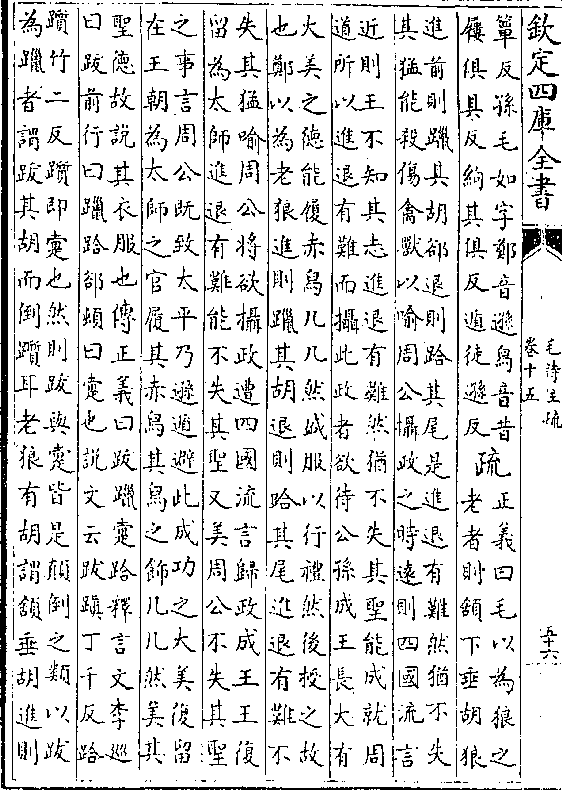 欽定四庫全書
毛詩注疏
卷十五
五十六
簞反孫毛如字鄭音遜舄音昔
屨俱具反絇其俱反遁徒遜反
疏
正義曰毛以為狼之
老者則頷下垂胡狼
進前則躐其胡郤退則跲其尾是進退有難然猶不失
其猛能殺傷禽獸以喻周公攝政之時遠則四國流言
近則王不知其志進退有難然猶不失其聖能成就周
道所以進退有難而攝此政者欲待公孫成王長大有
大美之德能履赤舄几几然盛服以行禮然後授之故
也鄭以為老狼進則躐其胡退則跲其尾進退有難不
失其猛喻周公將欲攝政遭四國流言歸政成王王復
留為太師進退有難能不失其聖又美周公不失其聖
之事言周公既致太平乃遜遁避此成功之大美復留
在王朝為太師之官履其赤舄其舄之飾几几然美其
聖德故說其衣服也傳正義曰跋躐疐跲釋言文李巡
曰跋前行曰躐跲郤頓曰疐也說文云跋蹎丁千反跲
躓竹二反躓即疐也然則跋與疐皆是顛倒之類以跋
為躐者謂跋其胡而倒躓耳老狼有胡謂頷垂胡進則